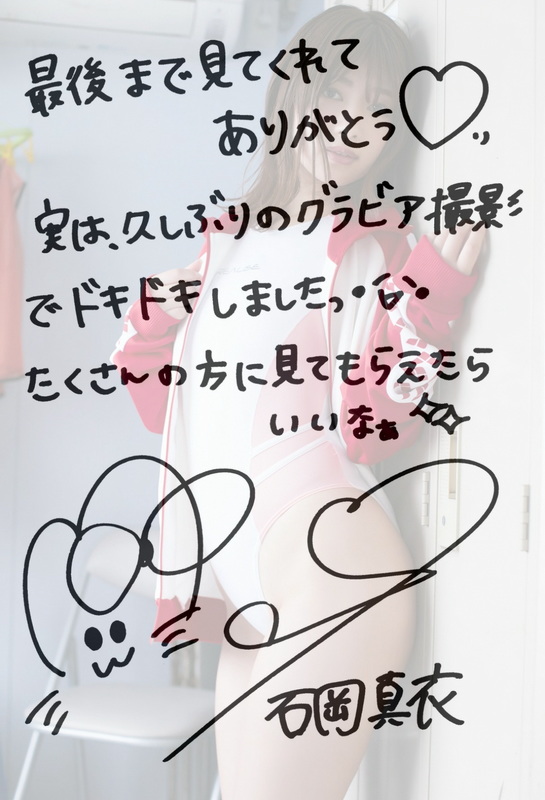 最後まで見てくれて
ありがとう♡,,
実は、久しぶりのグラビア撮影
でドキドキしましたっ
たくさんの方に見てもらえたら
いいなぁ
石岡真衣